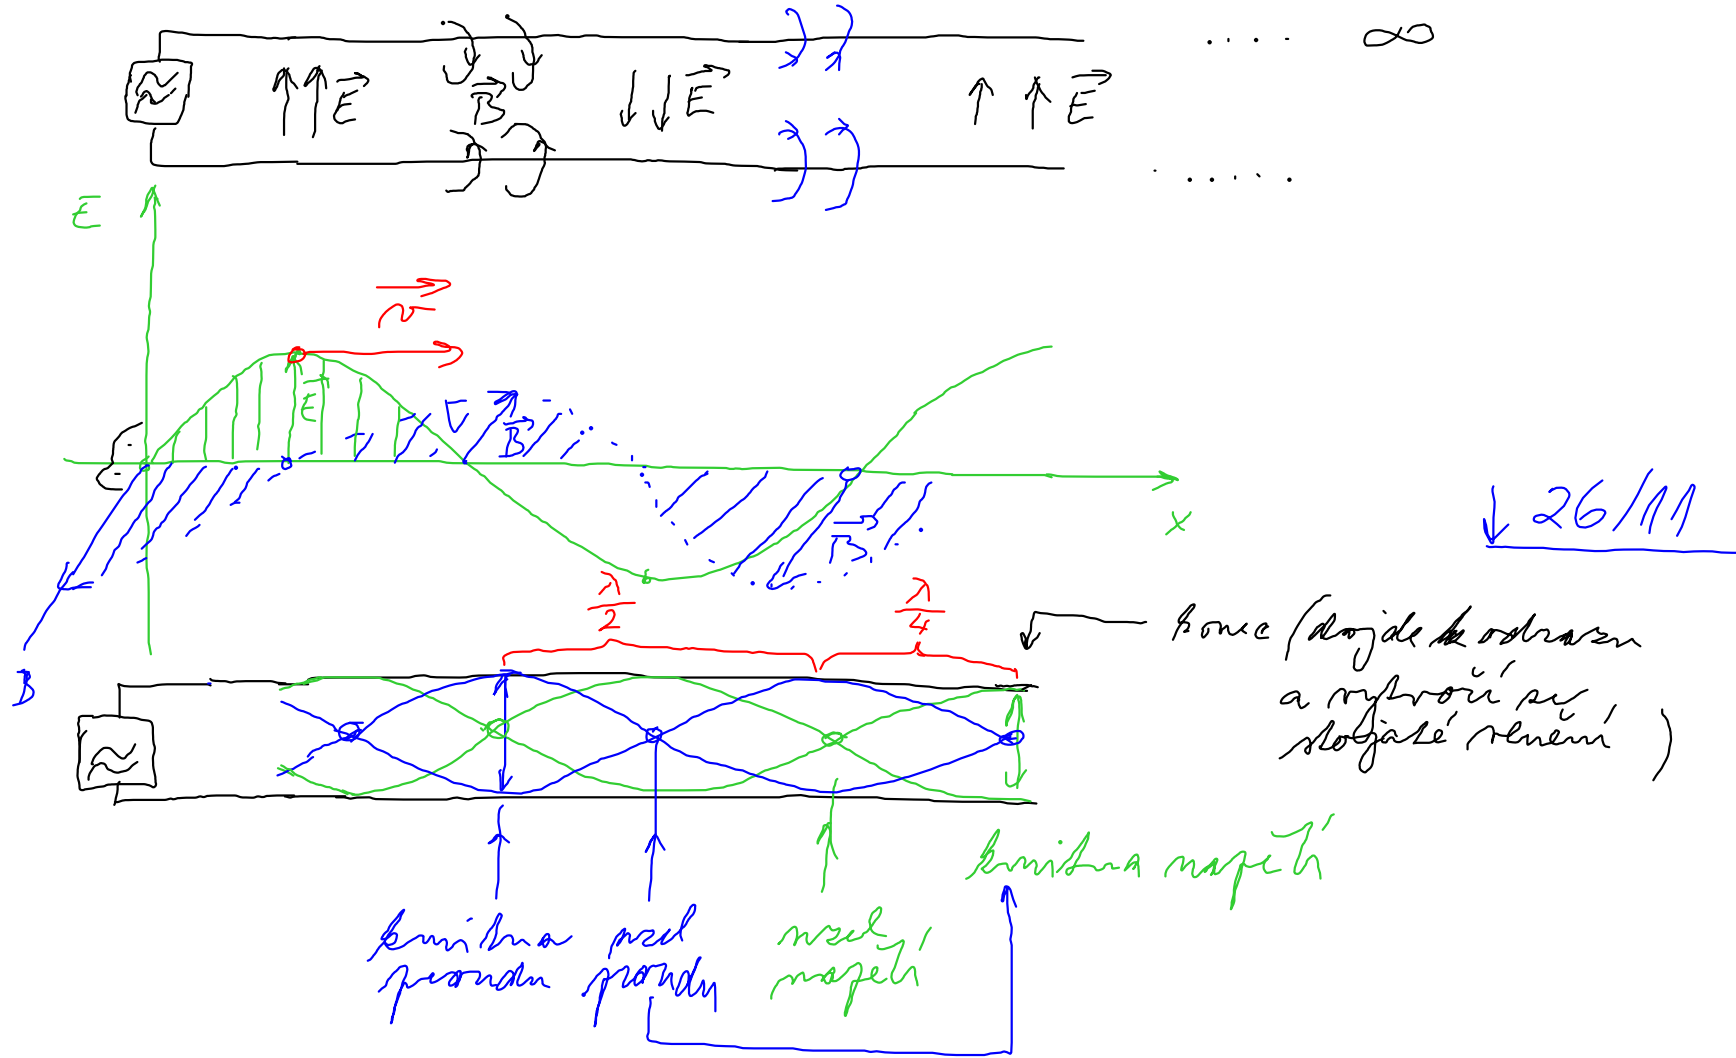 ∞
E⃗
B⃗
E⃗
E⃗
E
v⃗
E⃗
B⃗
B⃗
x
↓ 26/11
B
λ/2
λ/4
konec (dojde k odrazu
a vytvoří se
stojaté vlnění)
kmitna napětí
kmitna
proudu
uzel
proudu
uzel
napětí